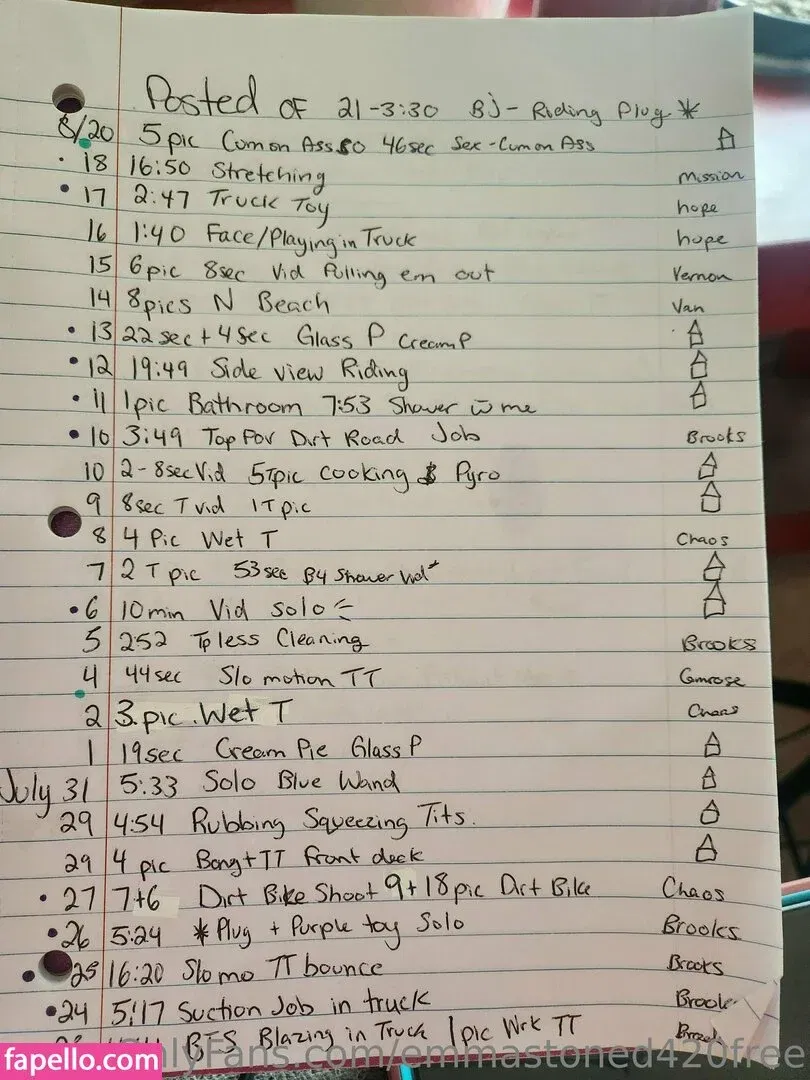 Posted OF 21-3:30 BJ - Riding Plug *
8/20 5pic Cum on Ass 46sec Sex - Cum on Ass
18 16:50 Stretching Mission
17 2:47 Truck Toy hope
16 1:40 Face/Playing in Truck hope
15 6pic 8sec Vid Pulling em out Vernon
14 8pics N Beach Van
13 22sec + 4sec Glass P CreamP
12 19:49 Side view Riding
11 1pic Bathroom 7:53 Shower w̄ me
10 3:49 Top Pov Dirt Road Job Brooks
10 2-8sec Vid 5Tpic cooking & Pyro
9 8sec T vid 1T pic
8 4 Pic Wet T Chaos
7 2 T pic 53sec B4 Shower Vid*
6 10min Vid solo
5 252 Tpless Cleaning Brooks
4 44sec Slo motion TT Camrose
2 3.pic.Wet T Chaos
1 19sec Cream Pie Glass P
July 31 5:33 Solo Blue Wand
29 4:54 Rubbing Squeezing Tits.
29 4 pic Bong + TT front deck
27 7+6 Dirt Bike Shoot 9+18pic Dirt Bike Chaos
26 5:24 *Plug + Purple toy Solo Brooks
25 16:20 Slo mo TT bounce Brooks
24 5:17 Suction Job in truck Brook
BTS Blazing in Truck 1pic Wrk TT
OnlyFans.com/emmastoned420free
fapello.com